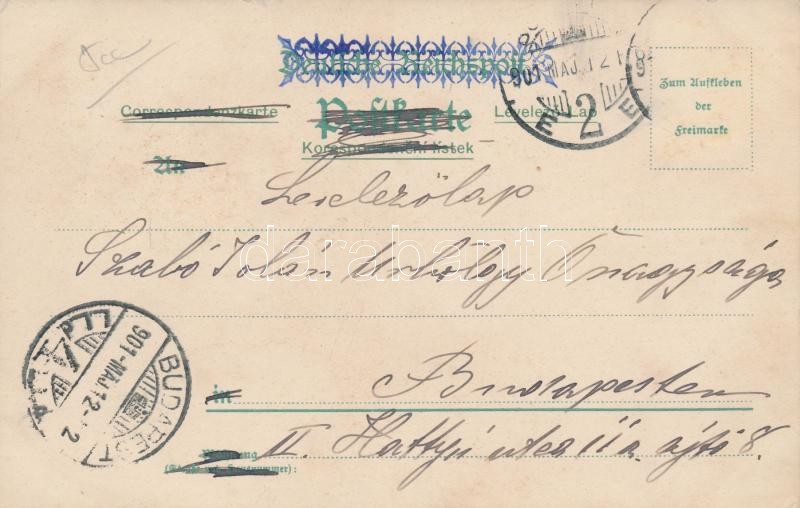 Deutsche Reichspost
Correspondenzkarte Postkarte Levelező-Lap
Korespondenční lístek
An
Zum Aufkleben
der
Freimarke
901 MÁJ. 12
E 2 E
Levelezőlap
Szabó Jolán Urhölgy Őnagysága
darabanth.com
Budapesten
in
II. Hattyú utca 11 a. ajtó 8.
Wohnung
(Straße und Hausnummer):
BUDAPEST
901-MÁJ. 12